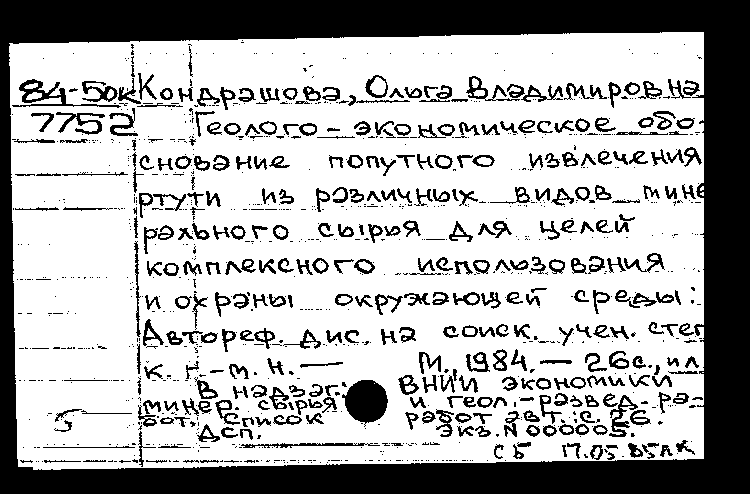 84-5ок Кондрашова, Ольга Владимировна
7752 Геолого-экономическое обо-
снование попутного извлечения
ртути из различных видов мине
рального сырья для целей
комплексного использования
и охраны окружающей среды:
Автореф. дис. на соиск. учен. степ
к. г.-м. н. — М., 1984. — 26с., ил
В надзаг.: ВНИИ экономики
минер. сырья и геол.-развед. ра-
бот. Список работ авт.: с. 26.
Дсп. Экз. N 000005.
СБ 17.05.85лк